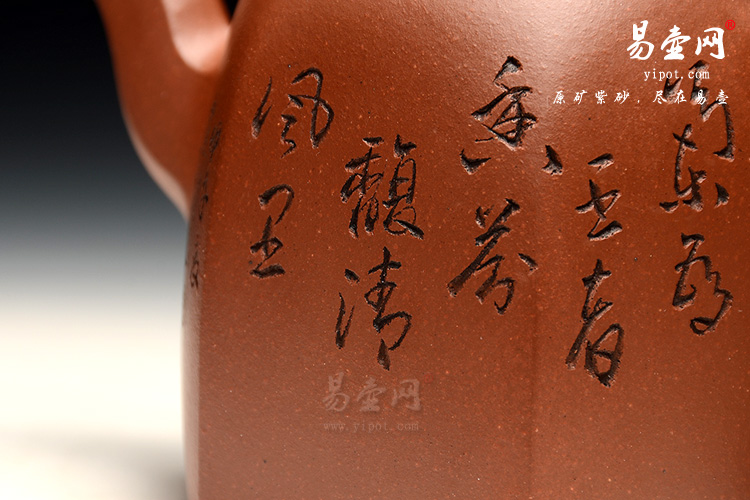 易壶网®
yipot.com
原矿紫砂，尽在易壶
兰为
王者
香芬
馥清
風里
易壶网
www.yipot.com